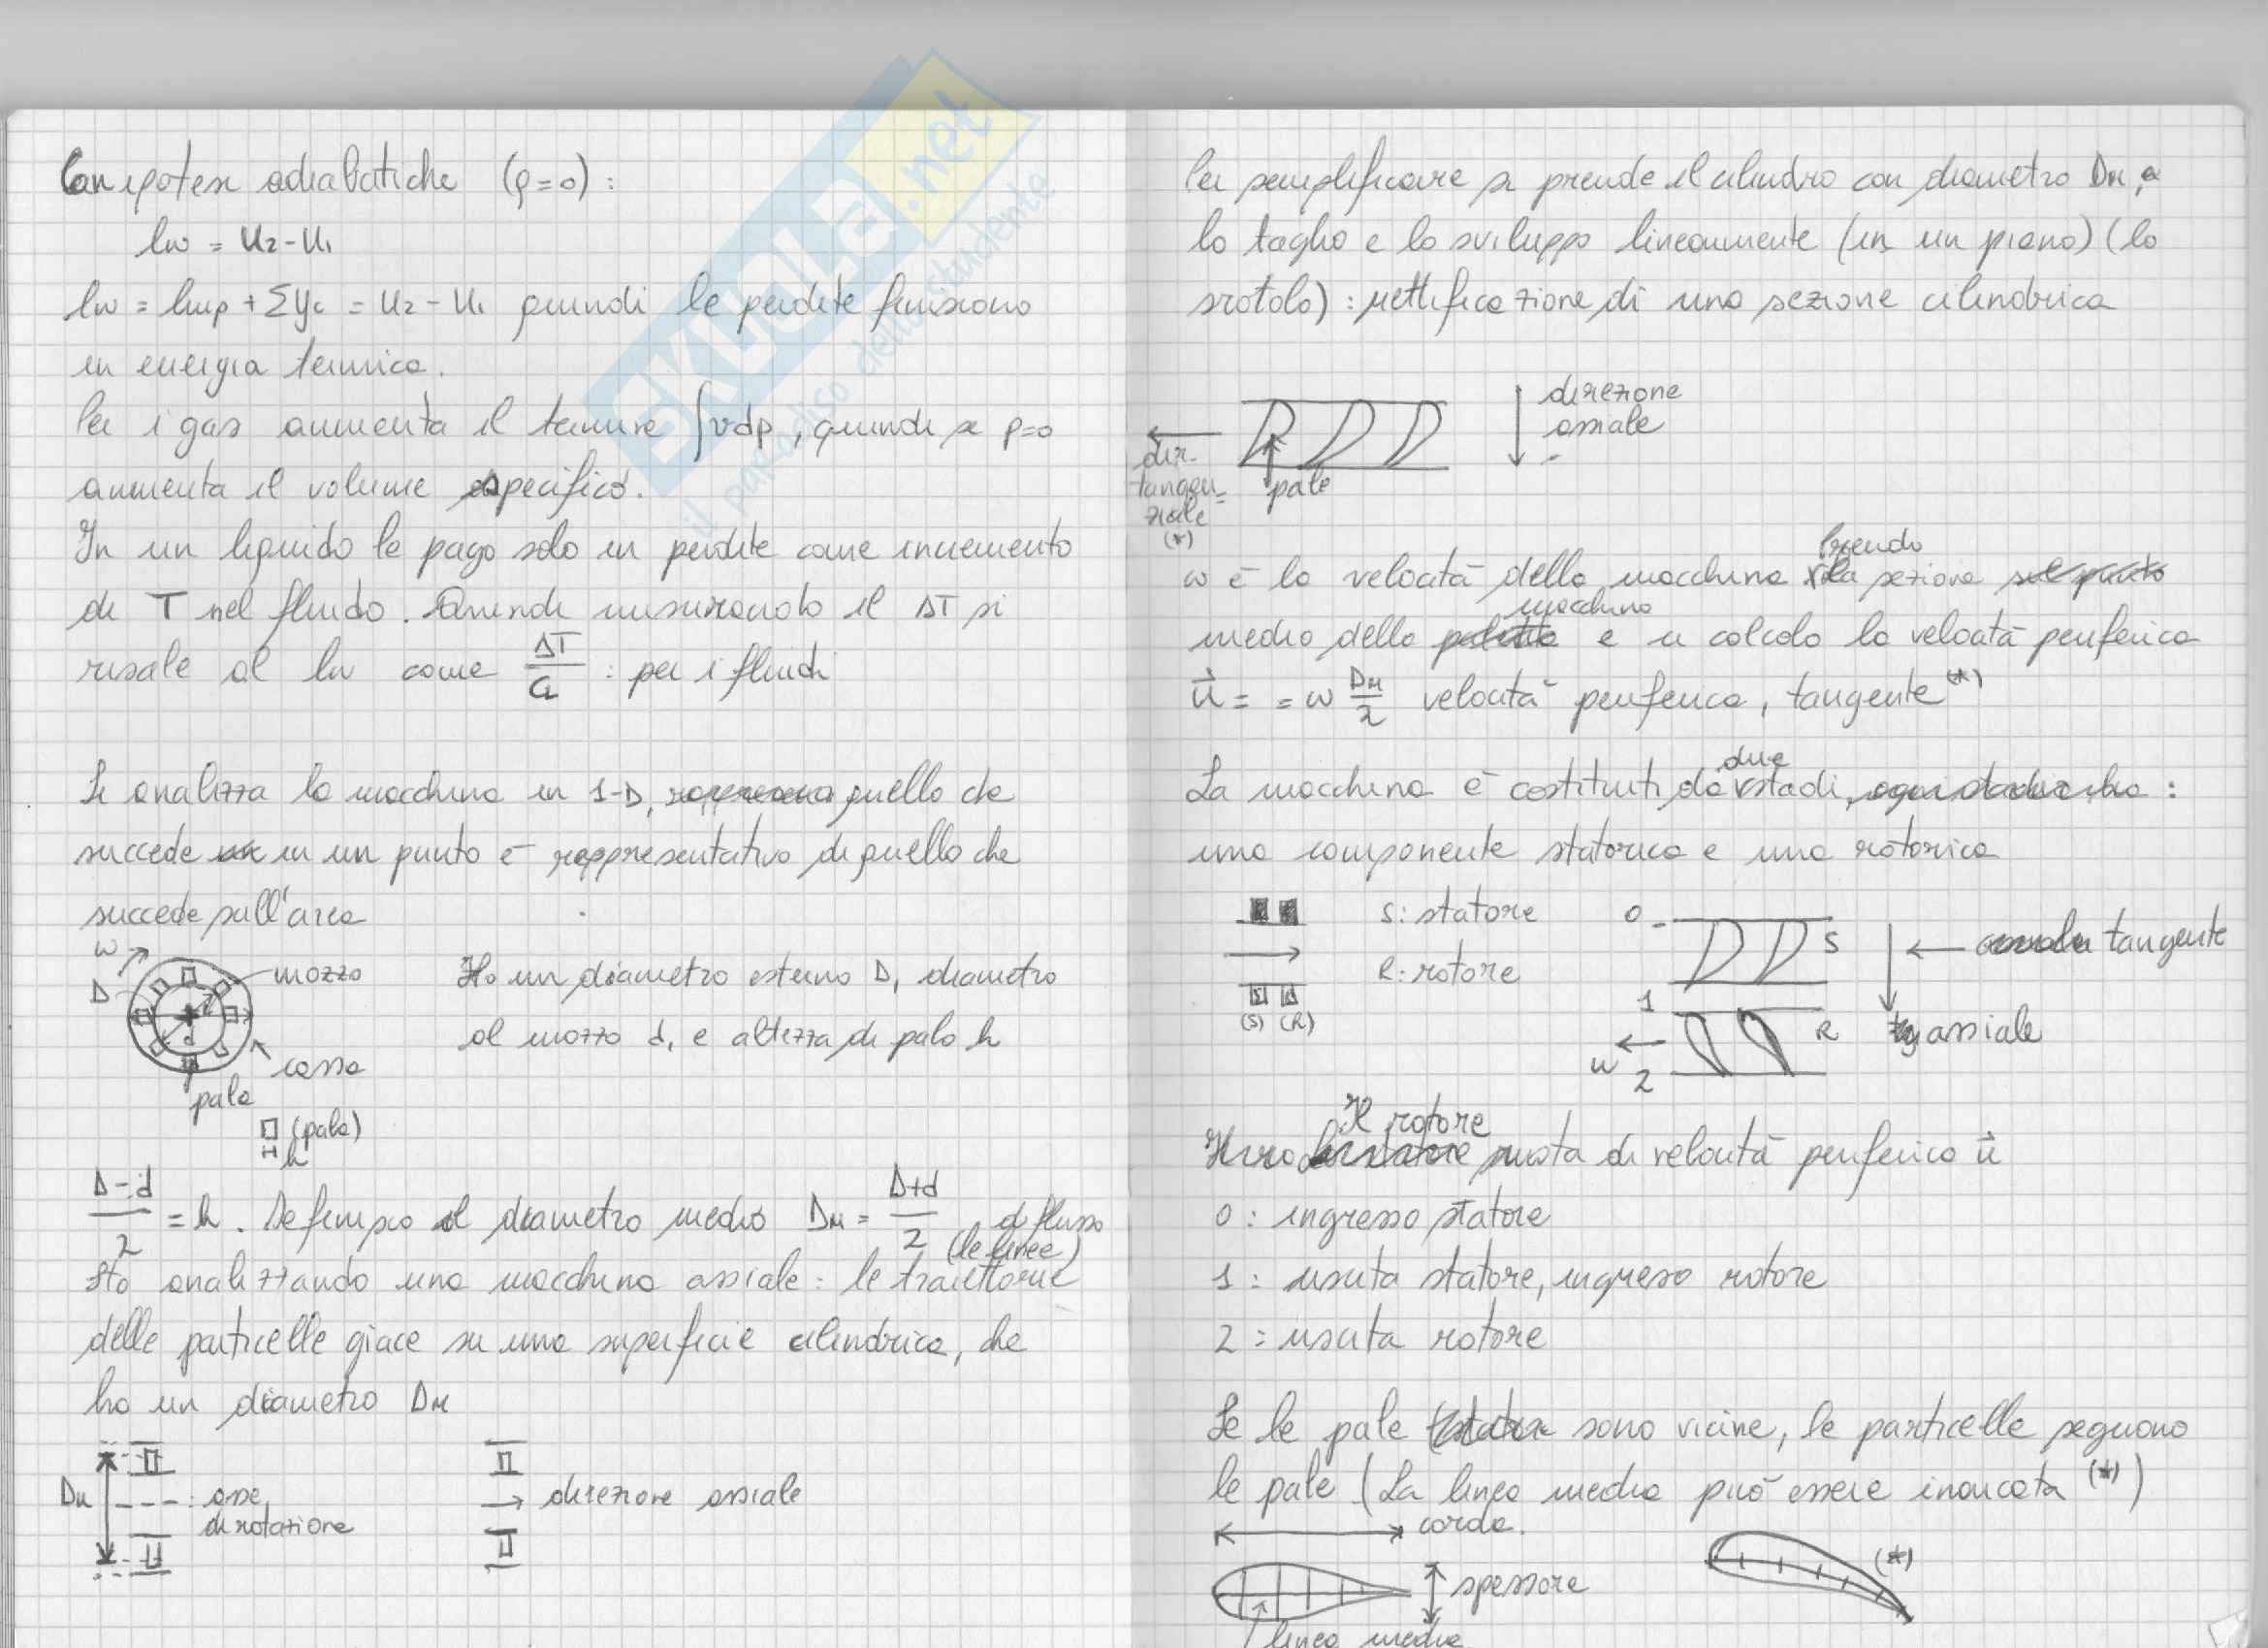 Con ipotesi adiabatiche (q=0):
lw = u2-u1
lw = lmp + Σyi = u2 - u1 quindi le perdite finiscono
in energia termica.
Per i gas aumenta il termine ∫vdp, quindi se q=0
aumenta il volume specifico.
In un liquido le pago solo in perdite come incremento
di T nel fluido. Quindi misurando il ΔT si
risale al lw come ΔT/CL : per i fluidi
Si analizza la macchina in 1-D, quello che
succede in un punto è rappresentativo di quello che
succede sull'area
ω
D
mozzo
d
cassa
pala
(pala)
h
Ho un diametro esterno D, diametro
al mozzo d, e altezza di pala h
D-d/2 = h. Definisco il diametro medio DM = D+d/2
(le linee di flusso)
Sto analizzando una macchina assiale: le traiettorie
delle particelle giace su una superficie cilindrica, che
ha un diametro DM
DM
: asse
di rotazione
direzione assiale
Per semplificare si prende il cilindro con diametro DM, e
lo taglio e lo sviluppo linearmente (in un piano) (lo
srotolo): rettificazione di una sezione cilindrica
dir.
tangen=
ziale
(*)
pale
direzione
assiale
ω è la velocità della macchina. Prendo la sezione
medio della macchina e si calcola la velocità periferica
u⃗ = = ω DM/2 velocità periferica, tangente (*)
La macchina è costituiti da due stadi, :
una componente statorica e una rotorica
(S) (R)
S: statore
R: rotore
0
S
1
R
ω
2
tangente
assiale
Il rotore ruota di velocità periferica u⃗
0: ingresso statore
1: uscita statore, ingresso rotore
2: uscita rotore
Se le pale sono vicine, le particelle seguono
le pale (La linea media può essere inarcata (*))
corda.
spessore
linea media
(*)
SKUOLA.net
il paradiso dello studente